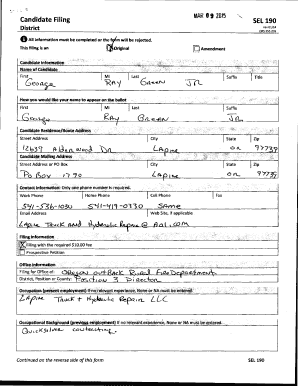 Candidate Filing
MAR 09 2015
SEL 190
District
All information must be completed or the form will be rejected.
This filing is an
Original
Amendment
Candidate Information
Name of Candidate
First MI Last Suffix Title
George Ray Green JR
How you would like your name to appear on the ballot
First MI Last Suffix
George Ray Green JR
Candidate Residence/Route Address
Street Address City State Zip
Lapine OR 97739
Candidate Mailing Address
Street Address or PO Box City State Zip
PO Box Lapine OR 97739
Contact Information Only one phone number is required.
Work Phone Home Phone Cell Phone Fax
541-536-1030 541-419-0330 SAME
Email Address Web Site, if applicable
Lapine Truck and Hydraulic Repair @ Aol.com
Filing Information
Filing with the required $10.00 fee
Prospective Petition
Office Information
Filing for Office of: Oregon outback Rural Fire Department
District, Position or County: Position 3 Director
Occupation (present employment) If no relevant experience, None or NA must be entered.
Lapine Truck + Hydraulic Repair LLC
Occupational Background (previous employment) If no relevant experience, None or NA must be entered.
Quicksilver contracting
Continued on the reverse side of this form
SEL 190